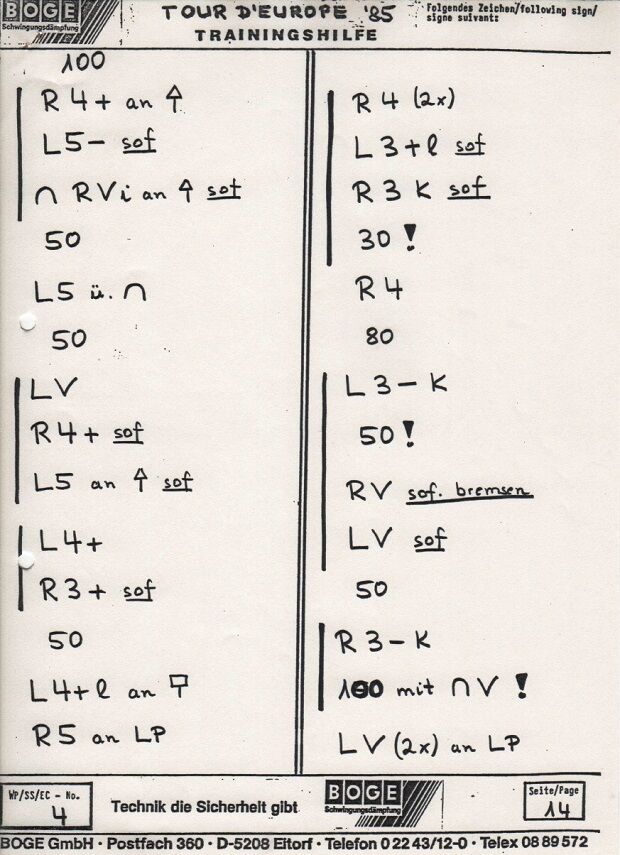 BOGE
Schwingungsdämpfung
TOUR D'EUROPE '85
TRAININGSHILFE
Folgendes Zeichen/following sign/
signe suivant:
100
R 4 + an ↑
L5 - sof
∩ RVi an ↑ sof
50
L5 ü. ∩
50
LV
R4+ sof
L5 an ↑ sof
L4+
R3+ sof
50
L4+l an
R5 an LP
R 4 (2x)
L 3+l sof
R 3 K sof
30 !
R 4
80
L 3 - K
50 !
RV sof. bremsen
LV sof
50
R 3 - K
100 mit ∩ V !
LV (2x) an LP
WP/SS/EC - No.
4
Technik die Sicherheit gibt
BOGE
Schwingungsdämpfung
Seite/Page
14
BOGE GmbH · Postfach 360 · D-5208 Eitorf · Telefon 0 22 43/12-0 · Telex 08 89 572